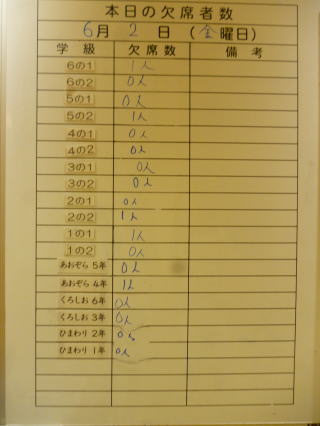 本日の欠席者数
6月 2 日 (金曜日)
学級 欠席数 備考
6の1 1人
6の2 0人
5の1 0人
5の2 1人
4の1 0人
4の2 0人
3の1 0人
3の2 0人
2の1 0人
2の2 1人
1の1 1人
1の2 0人
あおぞら 5年 0人
あおぞら 4年 1人
くろしお 6年 0人
くろしお 3年 0人
ひまわり 2年 0人
ひまわり 1年 0人